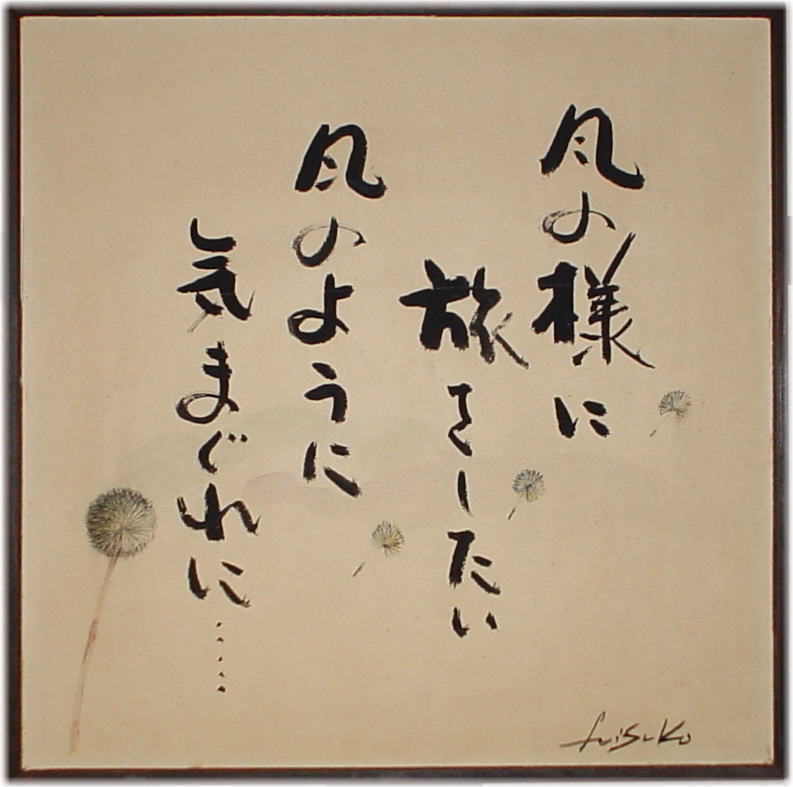 風の様に
旅をしたい
風のように
気まぐれに……